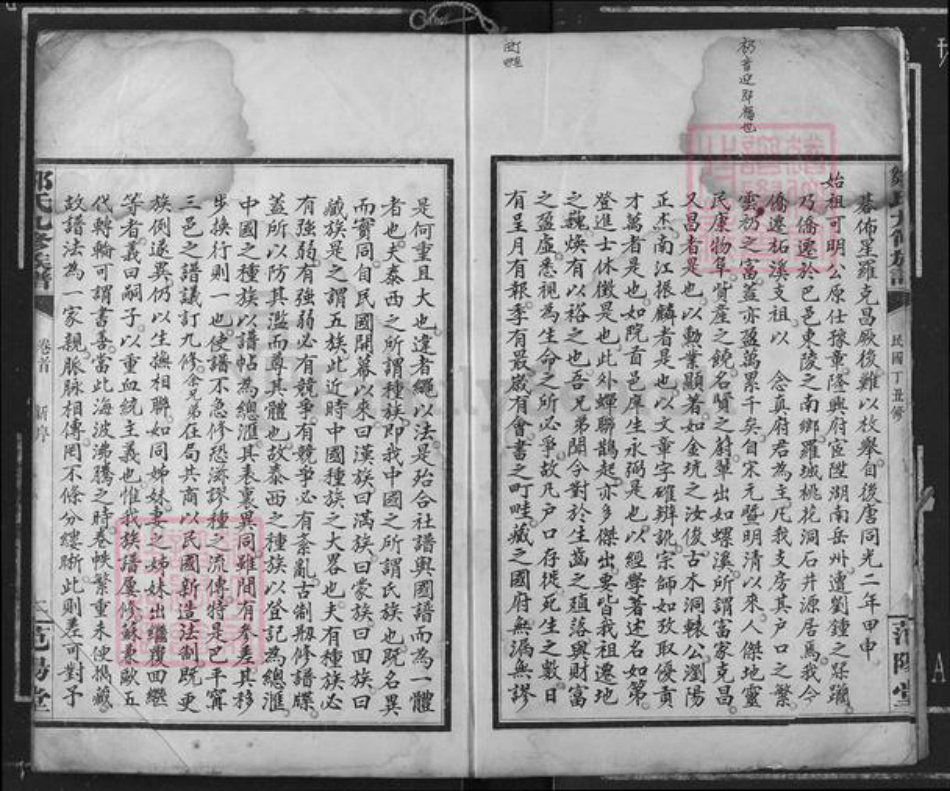 礽音迎即福也
町畦
鄒氏九修族譜
民國丁丑修
范陽堂
碁佈星羅克昌厥後難以枚舉自後唐同光二年甲申
始祖可明公原仕豫章隆興府宦陞湖南岳州遭劉鍾之蹂躪
乃僑遷於巴邑東陵之南鄉羅城桃花洞石井源居焉我今
僑遷柘溪支祖以 念真府君為主凡我支房其戶口之繁
雲礽之富蓋亦盈萬累千矣自宋元暨明清以來人傑地靈
民康物阜貲產之饒名賢之蔚輩出如螺溪所謂富家克昌
又昌者是也以勳業顯著如金坑之汝復古木洞轅公瀏陽
正杰南江振麟者是也以文章字確辨訛宗師如孜取優貢
才萬者是也如院首邑庠生永弼是也以經學著述名如第
登進士休徵是也此外蟬聯鵲起亦多傑出要皆我祖遷地
之魏煥有以裕之也吾兄弟聞今對於生齒之殖落與財富
之盈虛悉視為生命之所必爭故凡户口存徙死生之數日
有呈月有報季有最歲有會書之町畦藏之國府無漏無謬
是何重且大也違者繩以法是殆合社譜與國譜而為一體
者也夫泰西之所謂種族即我中國之所謂氏族也既名異
而實同自民國開幕以來曰漢族曰滿族曰蒙族曰回族曰
藏族是之謂五族此近時中國種族之大畧也夫有種族必
有強弱有強弱必有競爭有競爭必有紊亂古制剏修譜牒
蓋所以防其濫而尊其體也故泰西之種族以登記為總滙
中國之種族以譜帖為總滙其表裏異同雖間有參差其移
出換行則一也使譜不急修恐滋謬種之流傳特是巴平甯
三邑之譜議訂九修余兄弟在局共商以民國新造法制既更
族例遂異仍以生撫相聯如同姊妹妻之姊妹出繼覆回繼
等者義曰嗣子以重血統主義也惟我族譜屢修蘇東歐五
代轉輪可謂書善當此海波沸騰之時卷帙繁重未便攜藏
故譜法為一家親脈脈相傳罔不條分縷晰此則差可對予
鄒氏九修族譜
卷首
新序
范陽堂